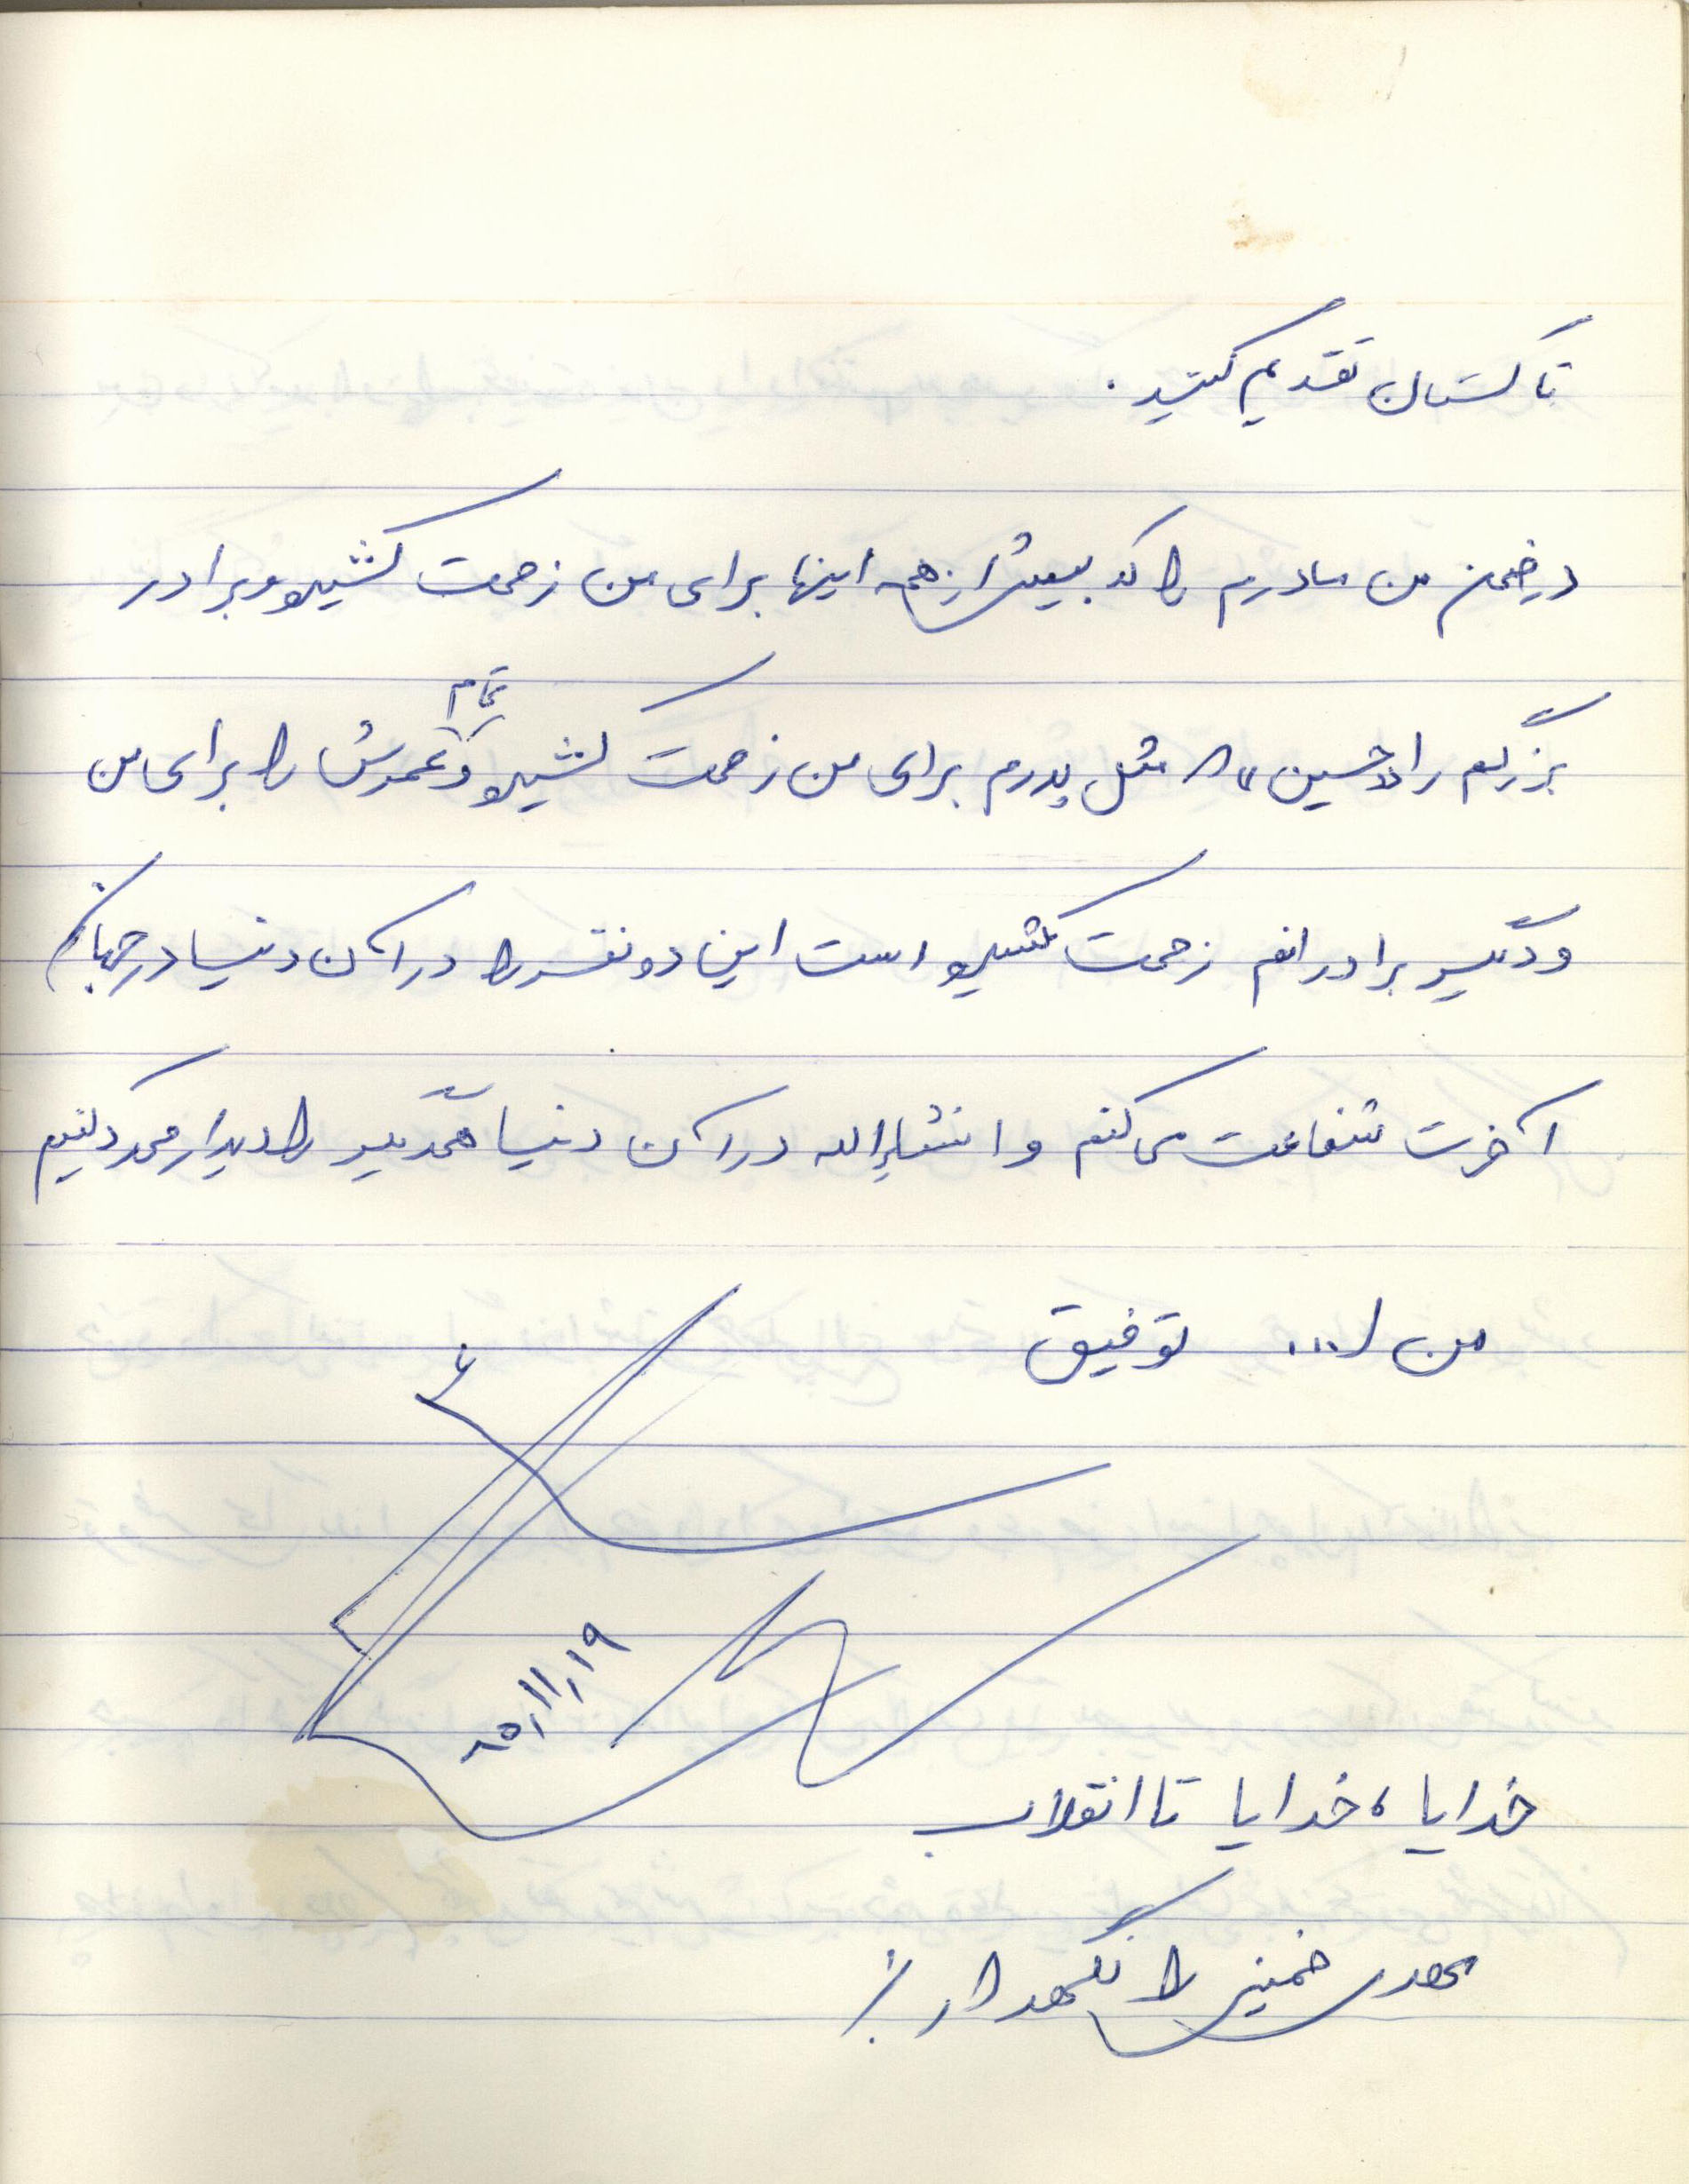 تاکستان تقدیم کنید.
در ضمن من مادرم را که بیشتر از همه اینها برای من زحمت کشیده و برادر
بزرگم را «حسین» که مثل پدرم برای من زحمت کشیده و تمام عمرش را برای من
و دیگر برادرانم زحمت کشیده است این دو نفر را در آن دنیا در جهان
آخرت شفاعت می کنم و انشاءالله در آن دنیا همدیگر را دیدار می کنیم
من ا... توفیق
۱۹/۱۱/
خدایا، خدایا تا انقلاب
مهدی خمینی را نگهدار